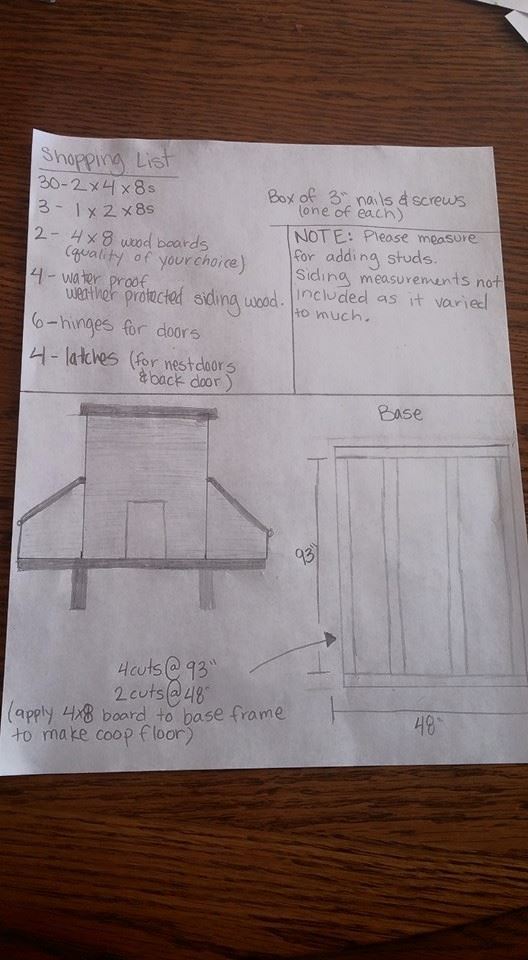 Shopping List
30-2x4x8s
3 - 1x2x8s
2 - 4x8 wood boards
(quality of your choice)
4 - water proof
weather protected siding wood.
6-hinges for doors
4 - latches (for nest doors
& back door)
Box of 3" nails & screws
(one of each)
NOTE: Please measure
for adding studs.
Siding measurements not
included as it varied
to much.
Base
93"
48"
4cuts@93"
2cuts@48"
(apply 4x8 board to base frame
to make coop floor)